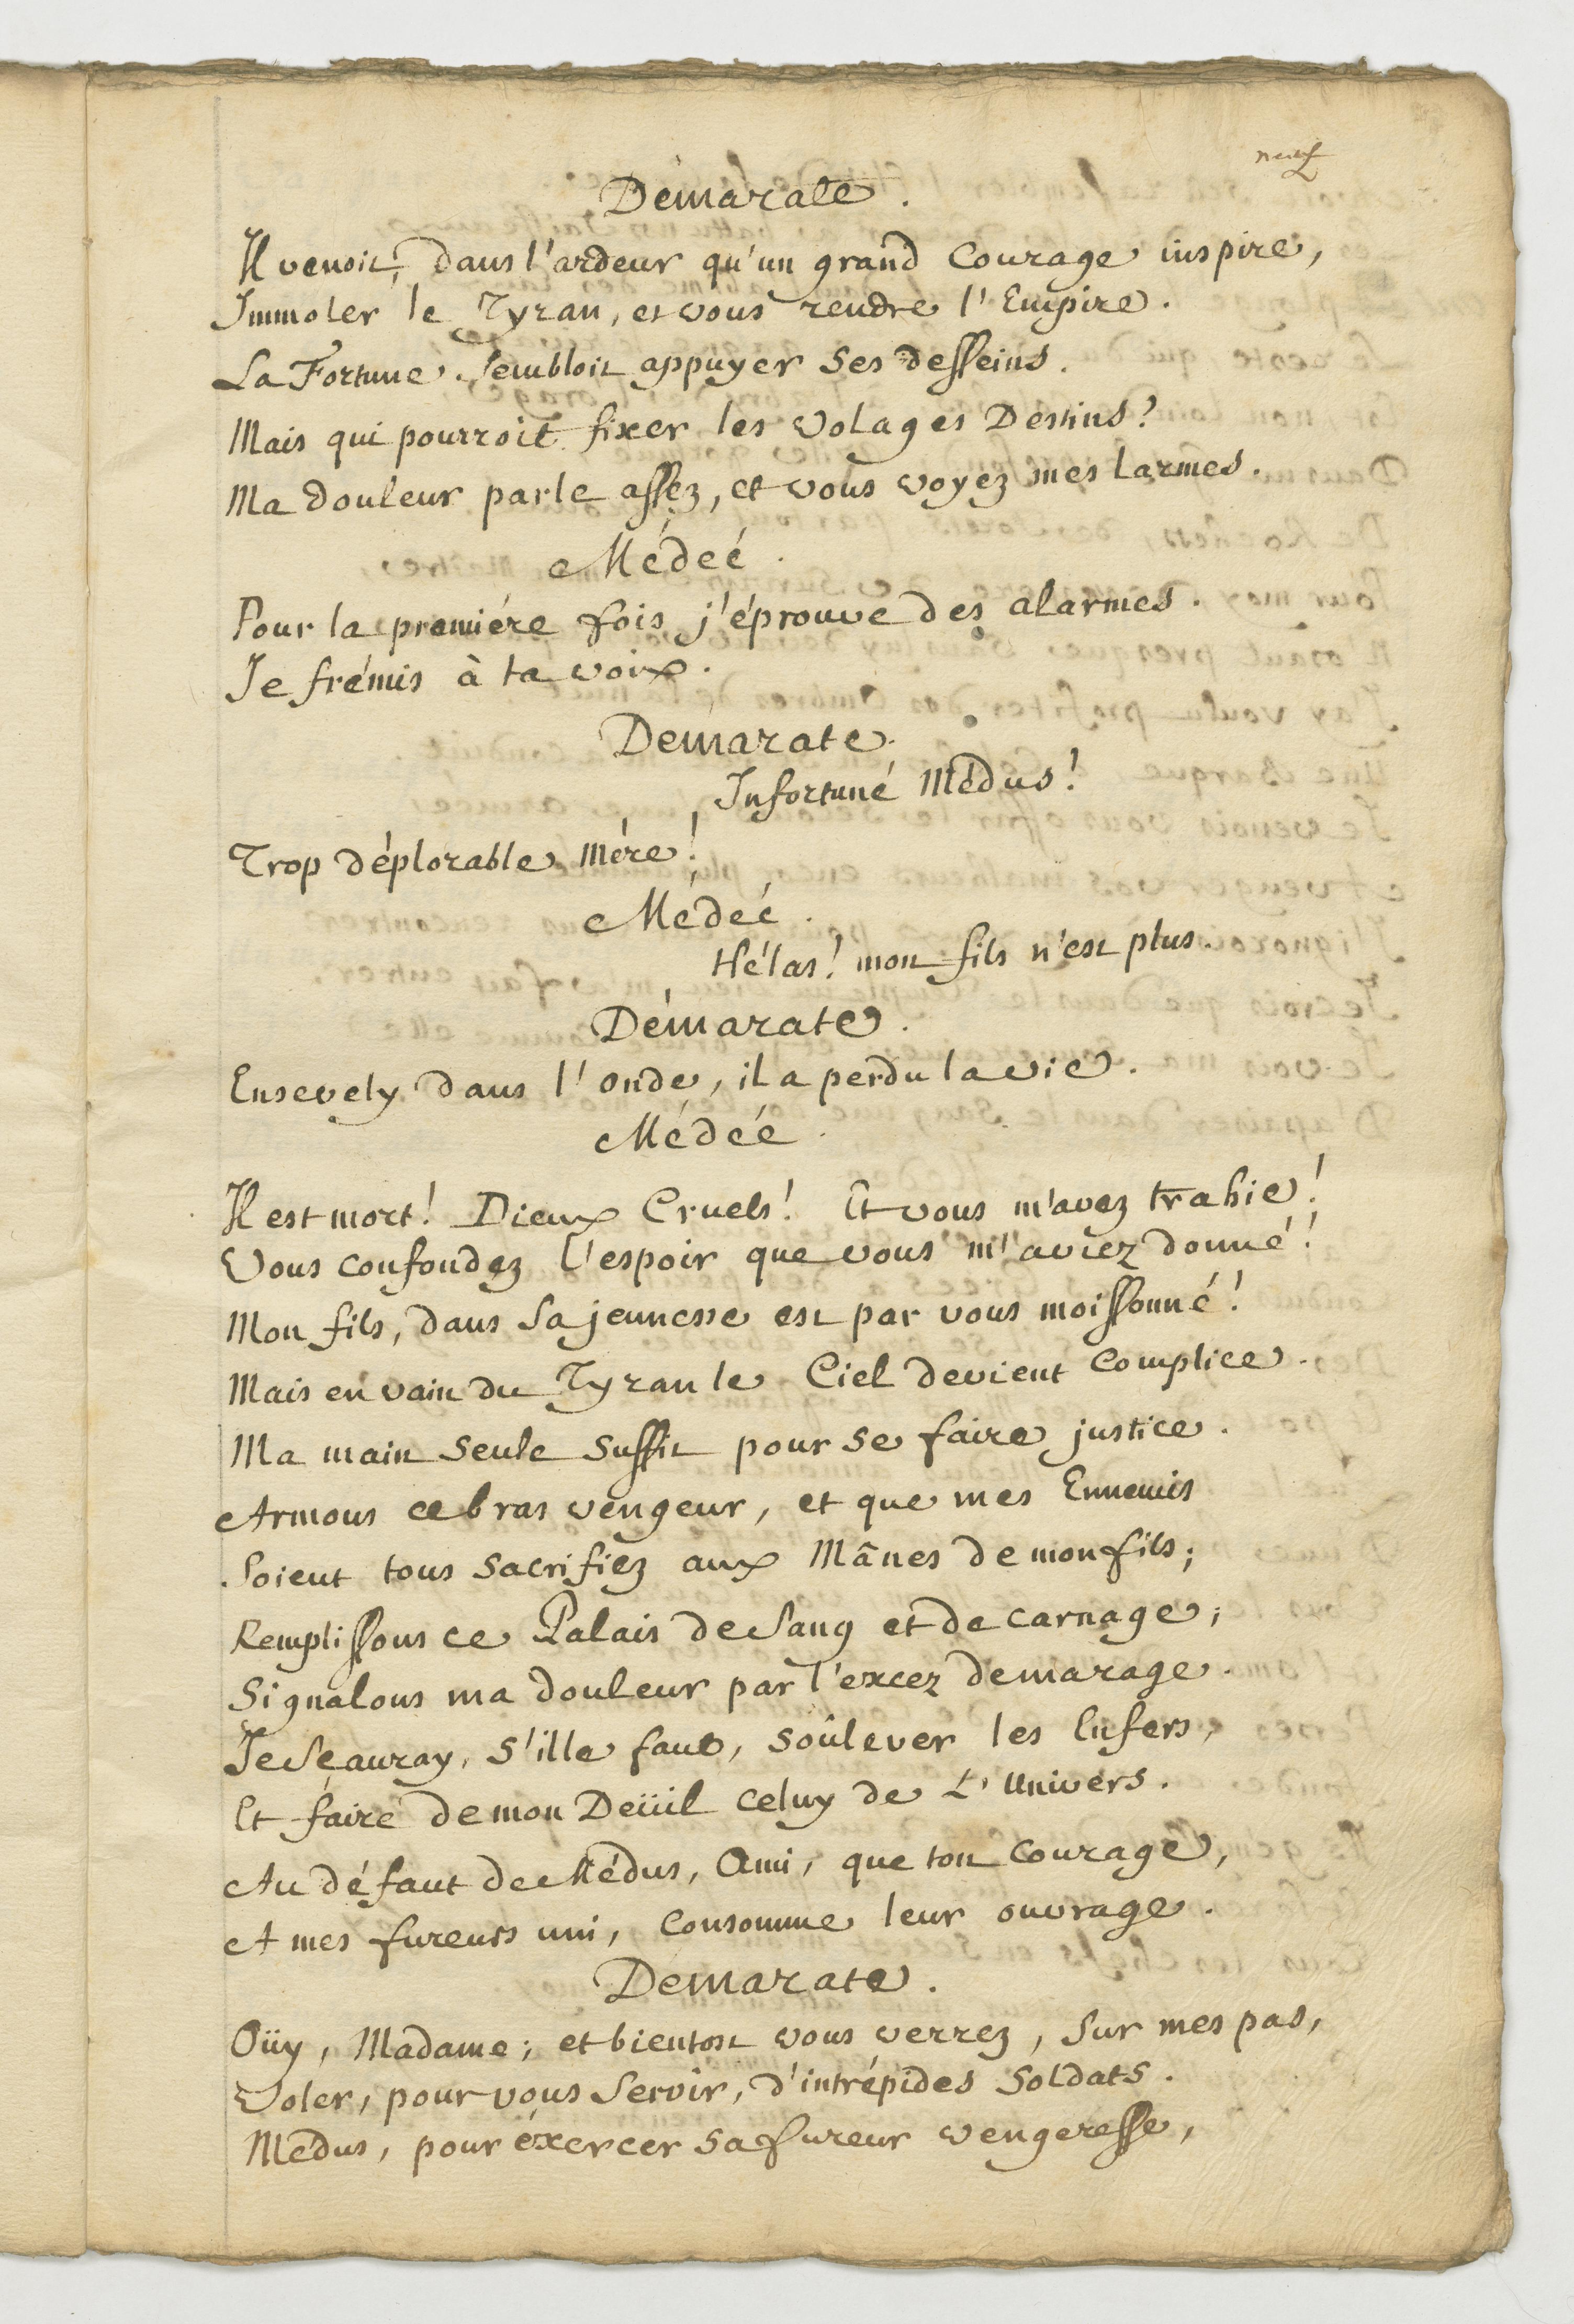 neuf
Démarate.
Il venoit, dans l'ardeur qu'un grand Courage inspire,
Immoler le Tyran, et vous rendre l'Empire.
La Fortune sembloit appuyer ses desseins.
Mais qui pourroit fixer les volages Destins?
Ma douleur parle assez, et vous voyez mes larmes.
Médeé.
Pour la premiére fois j'éprouve des alarmes.
Je frémis à ta voix.
Démarate.
Infortuné Médus!
Trop déplorable Mére!
Médeé.
Hélas! mon fils n'est plus.
Démarate.
Ensevely dans l'onde, il a perdu la vie.
Médée.
Il est mort! Dieux Cruels! Et vous m'avez trahie!
Vous confondez l'espoir que vous m'aviez donné!
Mon fils, dans sa jeunesse est par vous moissonné!
Mais en vain du Tyran le Ciel devient Complice.
Ma main seule suffit pour se faire justice.
Armons ce bras vengeur, et que mes Ennemis
Soient tous sacrifiez aux Mânes de mon fils;
Remplissons ce Palais de sang et de carnage;
Signalons ma douleur par l'excez de ma rage.
Je sçauray, s'il le faut, soûlever les Enfers,
Et faire de mon Deüil celuy de L'Univers.
Au défaut de Médus, Ami, que ton Courage,
A mes fureurs uni, Consomme leur ouvrage.
Démarate.
Oüy, Madame; et bientost vous verrez, sur mes pas,
Voler, pour vous servir, d'intrépides soldats.
Médus, pour éxercer sa fureur vengeresse,